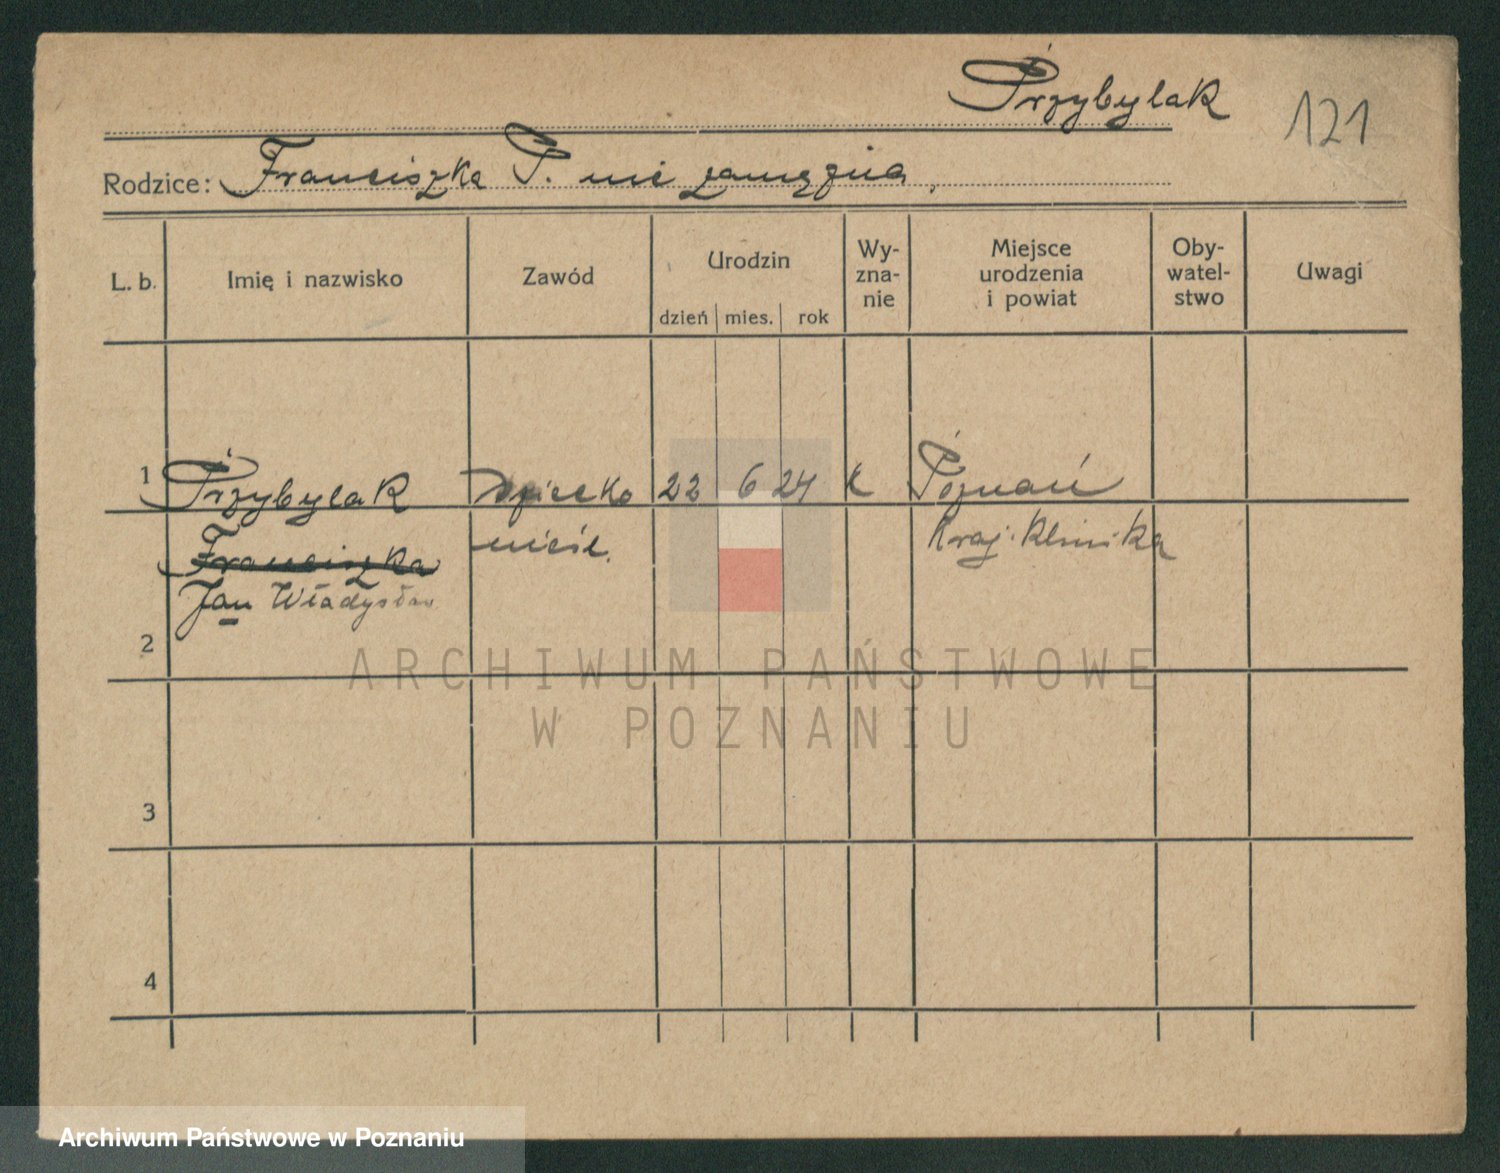 Przybylak
121
Rodzice: Franciszka P. nie zamężna,
L. b. Imię i nazwisko Zawód Urodzin dzień mies. rok Wy-zna-nie Miejsce urodzenia i powiat Oby-watel-stwo Uwagi
1 Przybylak Dziecko 22 6 24 k Poznań
Franciszka nieśl. Kraj. Klinika
Jan Władysław
2
3
4
ARCHIWUM PAŃSTWOWE
W POZNANIU
Archiwum Państwowe w Poznaniu